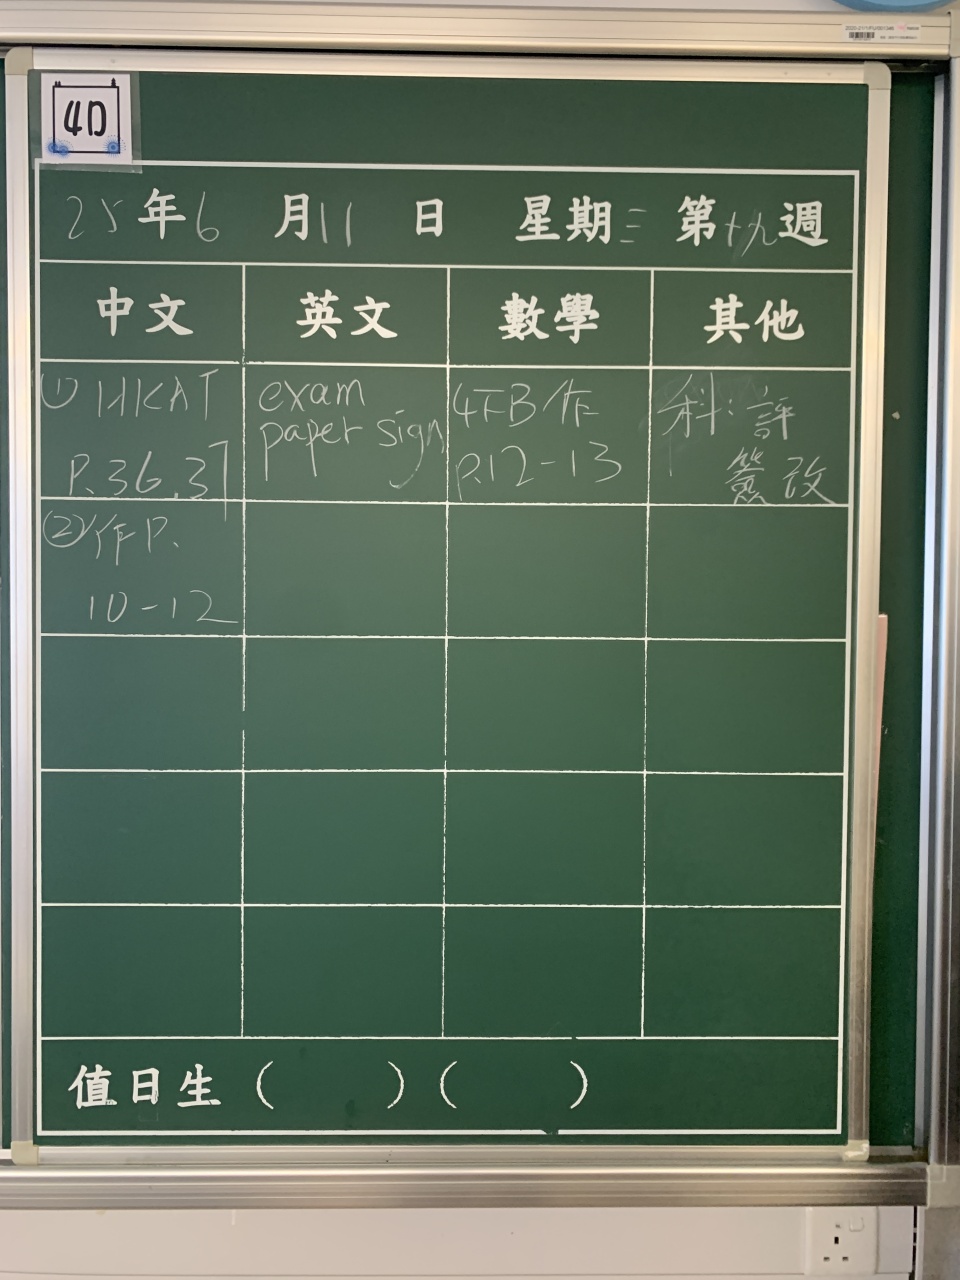 4D
25年6月11日 星期三 第十九週
中文 英文 數學 其他
① HKAT
P.36,37
exam
paper sign
4下B作
P.12-13
科：評
簽改
② 作P.
10-12
值日生 ( ) ( )